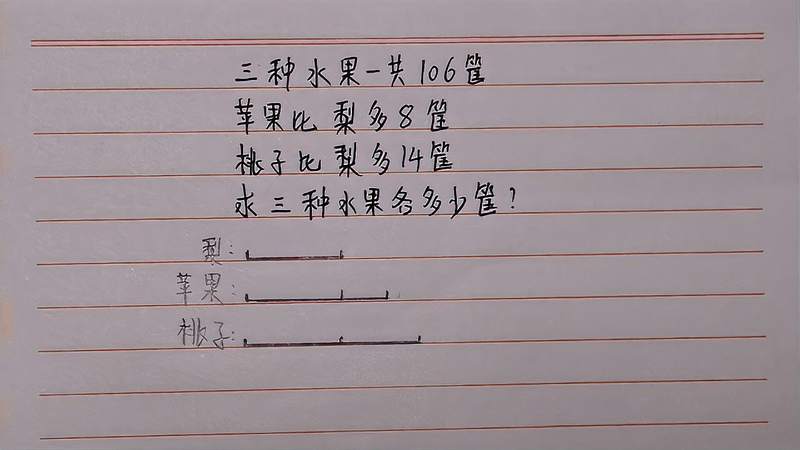 三种水果一共106筐
苹果比梨多8筐
桃子比梨多14筐
求三种水果各多少筐?
梨:
苹果:
桃子: